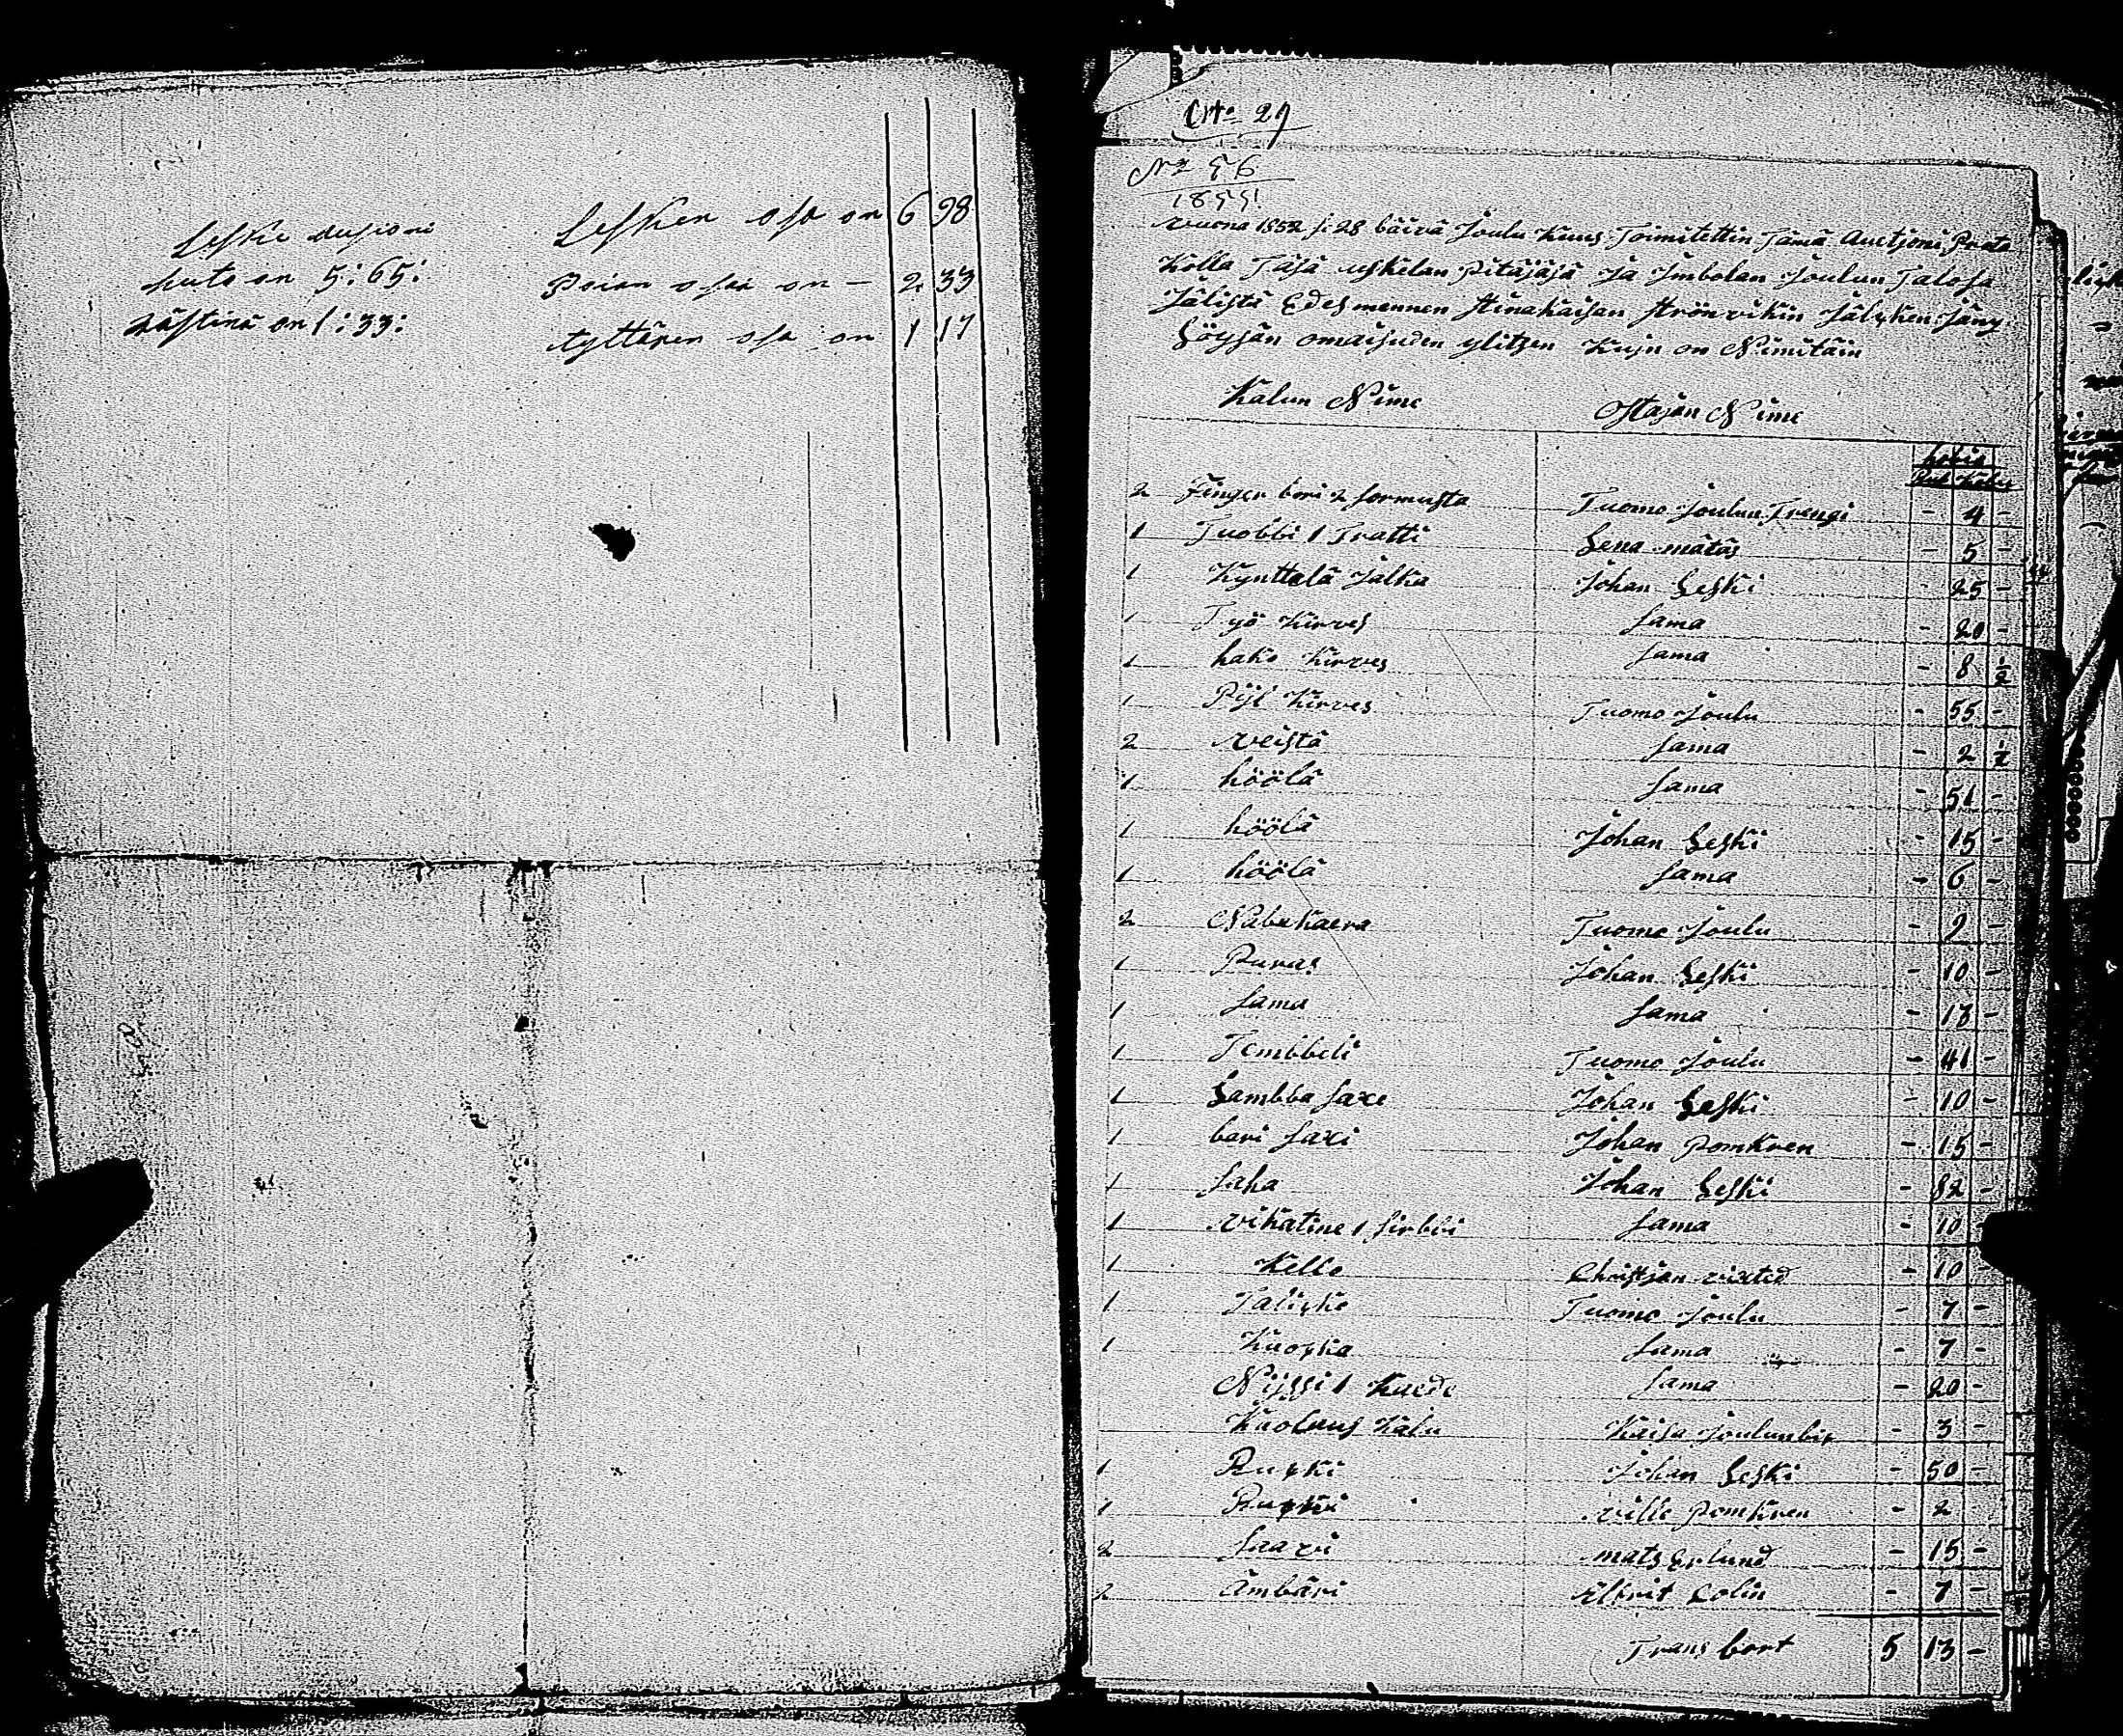 Leski ausioni
huto on 5:65:
Rästinä on 1:33:
Lesken osa on 6 98
Poian osaa on — 2 33
tyttären osa on 1 17
Litt: 29
No 56
1855
Vuona 1852 s: 28 bäivä Joulu Kuus Toimitettin Tämä Auctjoni Proto
Kolla Täsä uskelan Pitäjäsä Ja Imbolan Joulun Talosa
Jälistä Edesmennen Hinahaisan Strönvikin Jälsken Jäny
Löysän omaisuden ylitzen Kujn on Nimitäin
Kalun Nime Ostajan Nime
hobia
Rub Kobek
2 Finger bori 2 sormusta Tuomo Joulun Trengi - 4 -
1 Tuobbi 1 Tratti Lena mätäs - 5 -
1 Kynttelä Jalka Johan Leski 25 -
1 Työ Kirves Sama - 20 -
1 hako Kirves Sama - 8 ½
1 Pijl Kirves Tuomo Joulu - 55 -
2 veistä Sama - 2 ½
1 höölä Sama - 51 -
1 höölä Johan Leski - 15 -
1 höölä Sama - 6 -
2 Nabakaera Tuomo Joulu - 9 -
1 Puras Johan Leski - 10 -
1 Sama Sama - 13 -
1 Tembbeli Tuomo Joulu - 41 -
1 Lambba Saxe Johan Leski - 10 -
1 bari Saxi Johan Pomkren - 15 -
1 Saha Johan Leski - 82 -
1 vikatine 1 sirbbi Sama - 10 -
1 Kello Christjan - 10 -
1 Talisko Tuomo Joulu - 7 -
1 Kuoska Sama - 7 -
Nijssi 1 Kaede Sama - 20 -
Kuolaus Kalu Kaisa - 3 -
1 Ruski Johan Leski - 50 -
1 Ruski ville Pomkren - 2
2 Saavi mats - 15 -
2 ämbäri Colin - 7 -
Trans bort 5 13 -